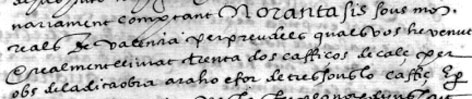 nariament comptant Noranta sis sous mo.
reals de Valencia per preu dels quals vos he venut
e realment lliurat trenta dos caffiços de calç per
obs de la dita obra a raho e for de tres sous lo caffiç E p